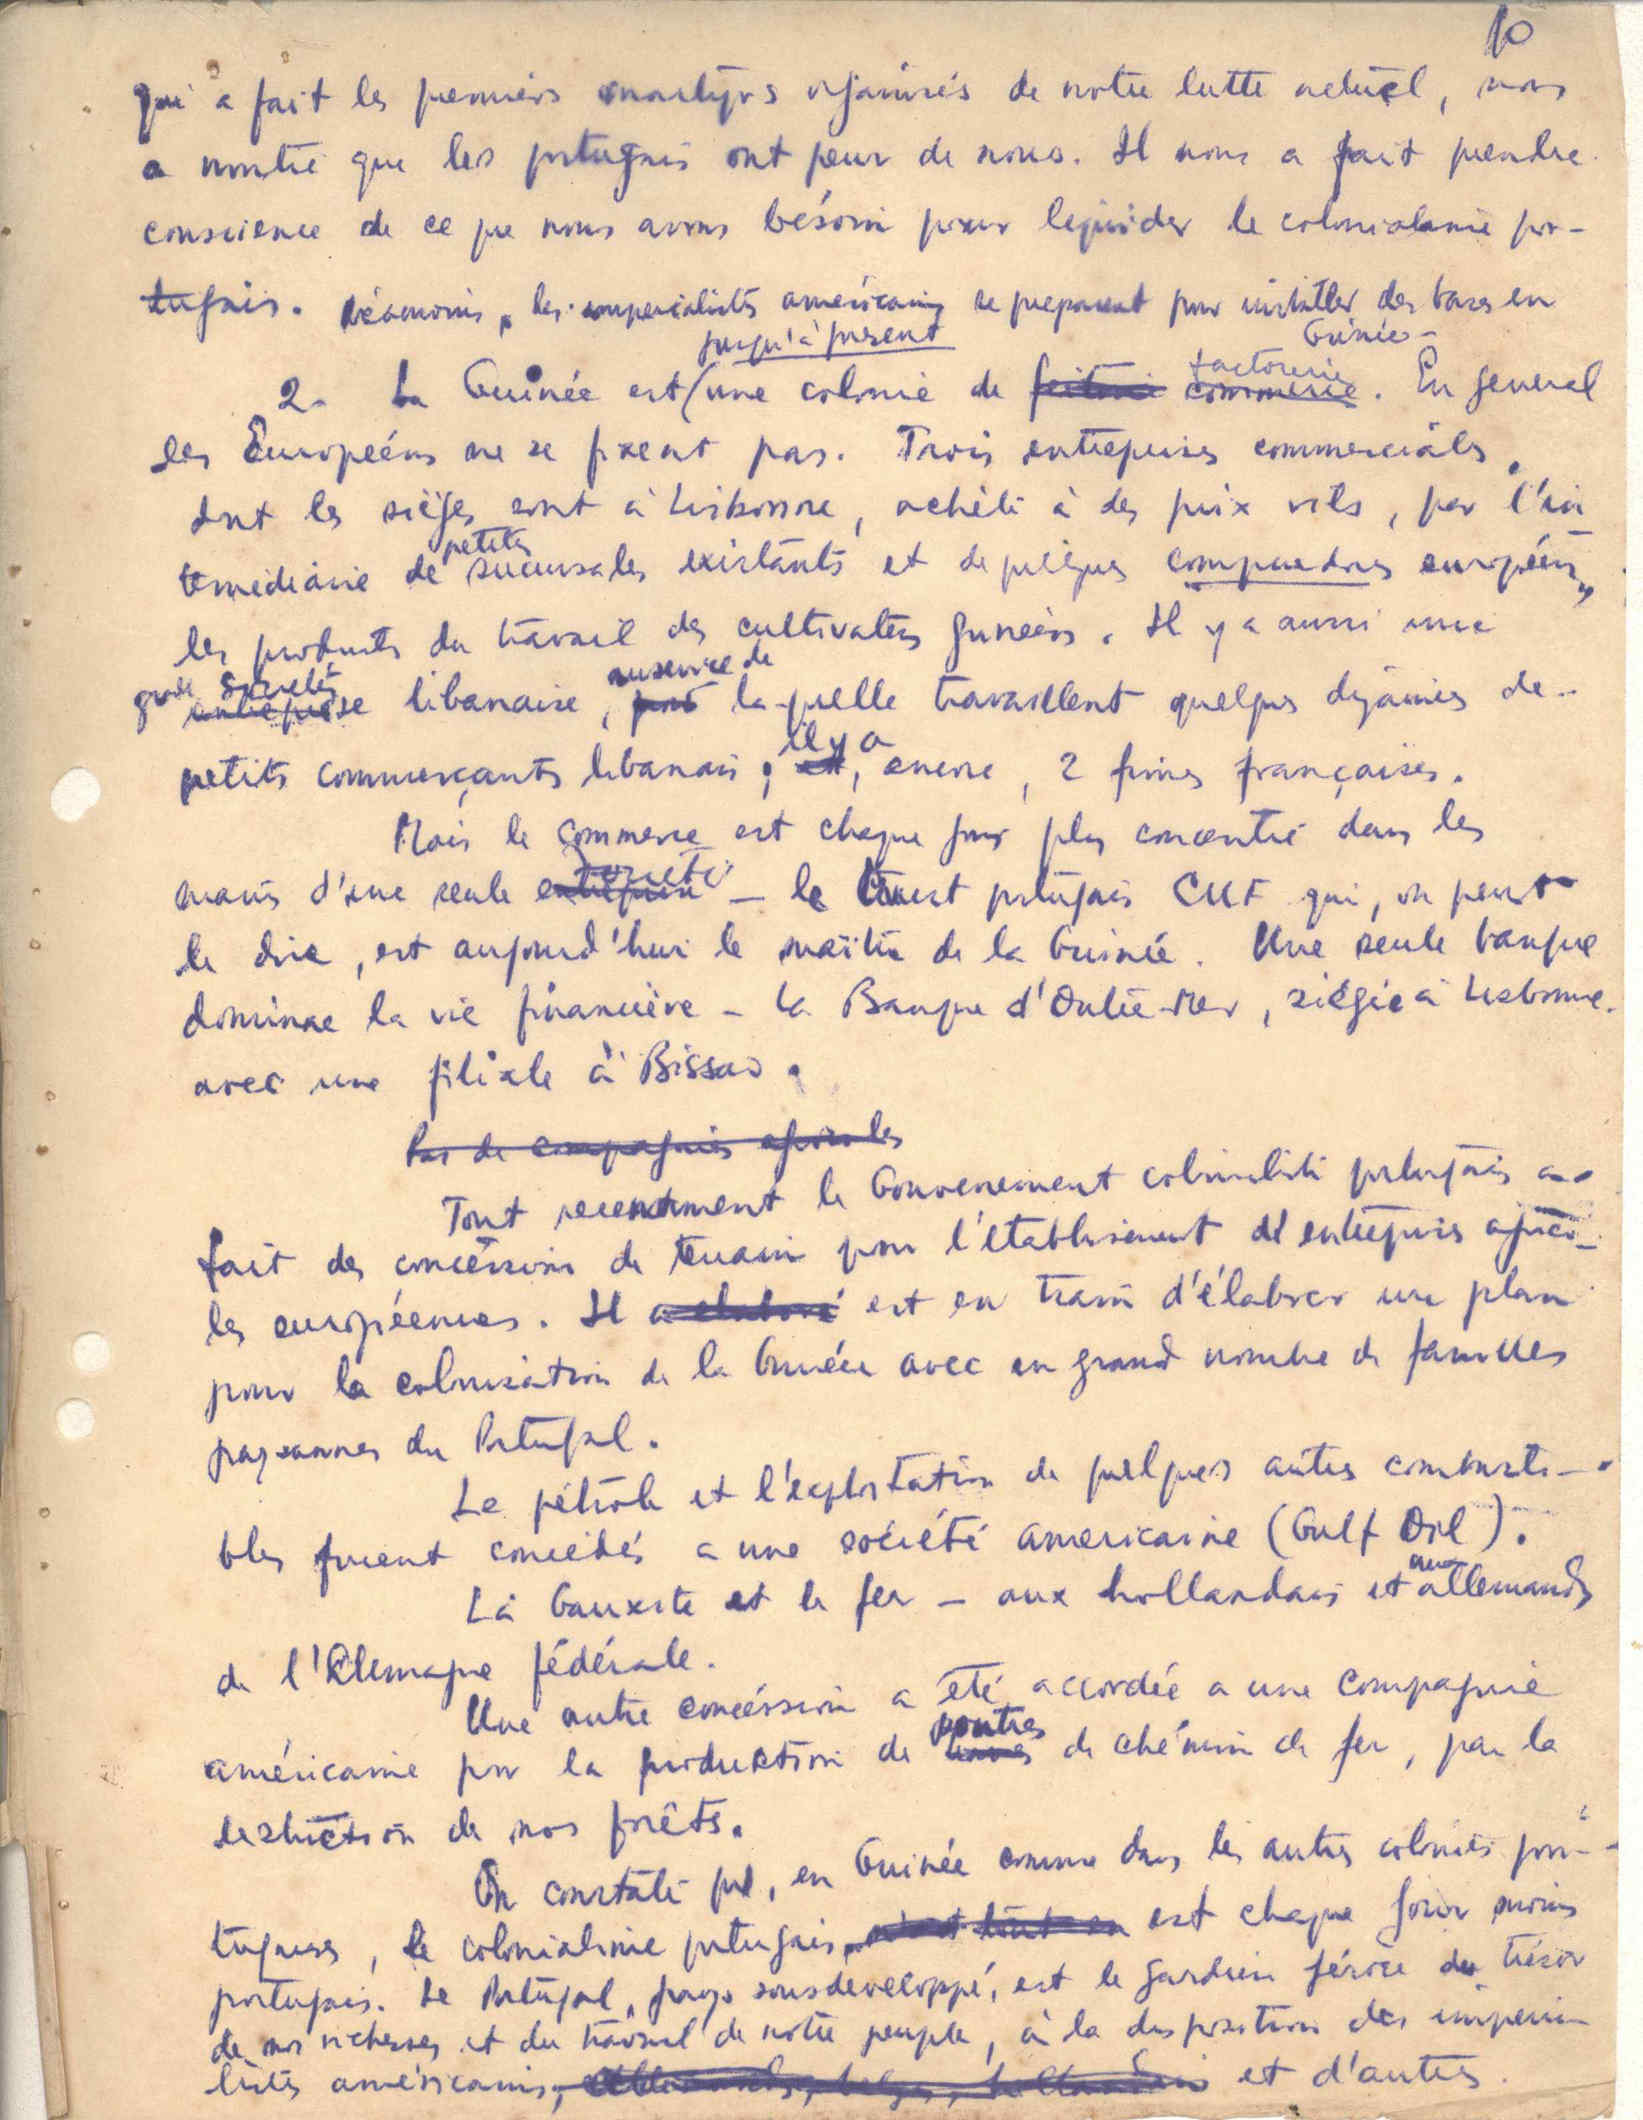 10
qui a fait les premiers martyrs organisés de notre lutte actuel, nous
a montré que les portugais ont peur de nous. Il nous a fait prendre
conscience de ce que nous avons bésoin pour liquider le colonialisme por-
tugais. Néamoins, les imperialistes américains se preparent pour installer des bases en
Guinée-
jusqu'à présent
factorerie
2- La Guinée est (une colonie de commerce. En general
les Européens ne se fixent pas. Trois entreprises commerciales,
dont les sièges sont à Lisbonne, achète à des prix vils, par l'in
petites
termédiaire de sucursales existants et de quelques compradores européens,
les produits du travail des cultivateurs guinéens. Il y a aussi une
grande société au service de
entreprise libanaise, pour laquelle travaillent quelques dizaines de-
il y a
petits commerçants libanais; est, encore, 2 firmes françaises.
Mais le commerce est chaque jour plus concentré dans les
société
mains d'une seule entreprise - le trust portugais CUF qui, on peut
le dire, est aujourd'hui le maître de la Guinée. Une seule banque
domine la vie financière - la Banque d'Outre-Mer, siégée à Lisbonne.
avec une filiale à Bissao.
Pas de compagnies agricoles
Tout recentment le Gouvernement colonialiste portugais a
fait des concéssions de terrain pour l'établisement d'entreprises agrico-
les européennes. Il a elaboré est en train d'élaborer un plan
pour la colonisation de la Guinée avec un grand nombre de familles
paysannes du Portugal.
Le pétrole et l'exploitation de quelques autres combusti-
bles furent concédés a une société americaine (Gulf Oil).
aux
La bauxite et le fer - aux hollandais et allemands
de l'Allemagne fédérale.
Une autre concéssion a été accordée a une compagnie
poutres
américaine pour la production de de chémin de fer, par la
destruction de nos forêts.
On constate que, en Guinée comme dans les autres colonies por-
tugaises, le colonialisme portugais, est chaque jour moins
portugais. Le Portugal, pays sousdeveloppé, est le gardien féroce du trésor
de nos richesses et du travail de notre peuple, à la disposition des imperia-
listes américains, allemands, belges, hollandais et d'autres.